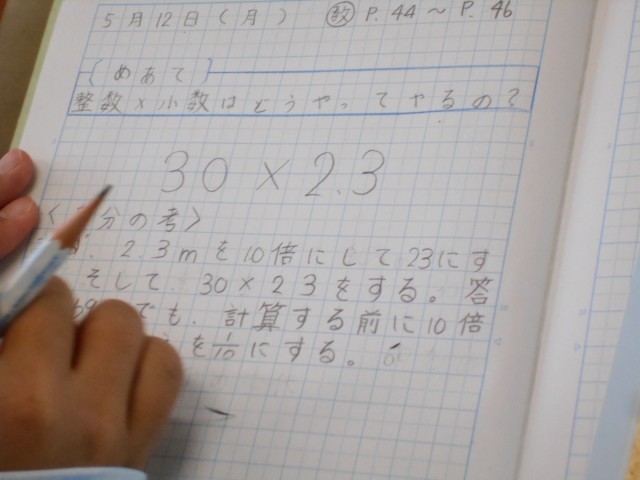 5月12日(月) 教 P.44～P.46
{めあて}
整数×小数はどうやってやるの？
30×2.3
分の考>
2.3mを10倍にして23にす
そして、30×23をする。答
でも、計算する前に10倍
を1/10にする。